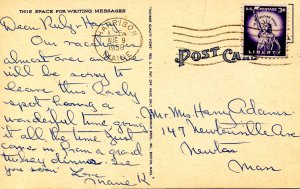 THIS SPACE FOR WRITING MESSAGES
Dear Ruby-Har
Our vacation
almost over and
will be sorry to
leave this lovely
spot. having a
wonderful time going
it all the time. Just
came in from a grand
turkey dinner. See
you soon! Love
Marie K
HARRISON
AUG 9
1958
MAINE
U.S. POSTAGE 3¢
LIBERTY
POST CARD
Mr. Mrs. Harry Adams
147 Newtonville Ave
Newton
Mass